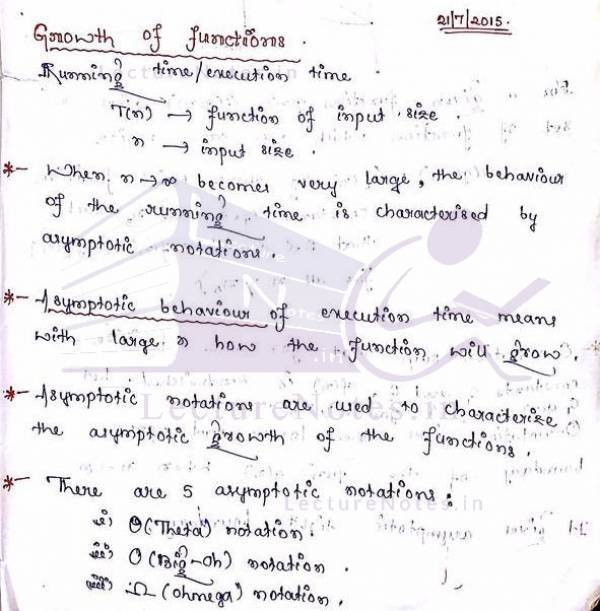 21/7/2015.
Growth of functions.
Running time/execution time.
T(n) → function of input size.
n → input size.
*- When n→∞ becomes very large, the behaviour
of the running time is characterised by
asymptotic notations.
*- Asymptotic behaviour of execution time means
with large n how the function will grow.
*- Asymptotic notations are used to characterize
the asymptotic growth of the functions.
*- There are 5 asymptotic notations:
i) Θ(Theta) notation.
ii) O(Big-Oh) notation.
iii) Ω(Ohmega) notation.
LectureNotes.in
LectureNotes.in